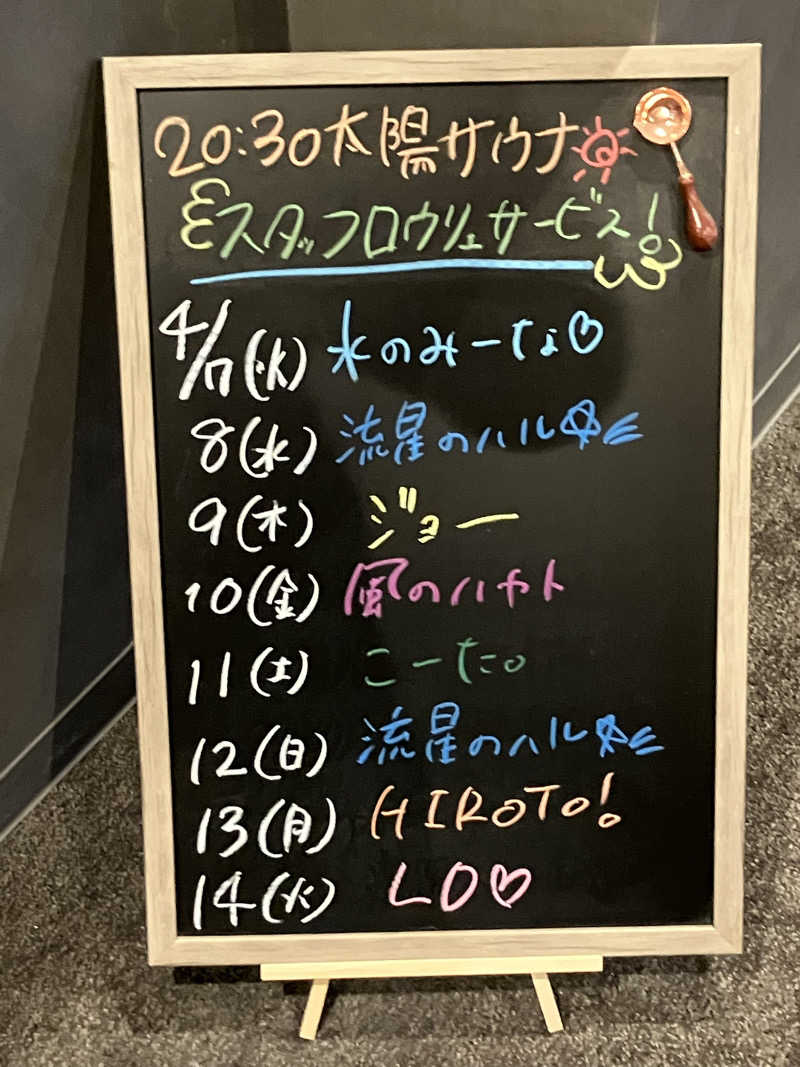 20:30太陽サウナ
スタッフロウリュサービス!
4/7(火) 水のみーなちょ♡
8(水) 流星のハル☆
9(木) ジョー
10(金) 風のハヤト
11(土) こーた。
12(日) 流星のハル☆
13(月) HIROTO!
14(火) LO♡